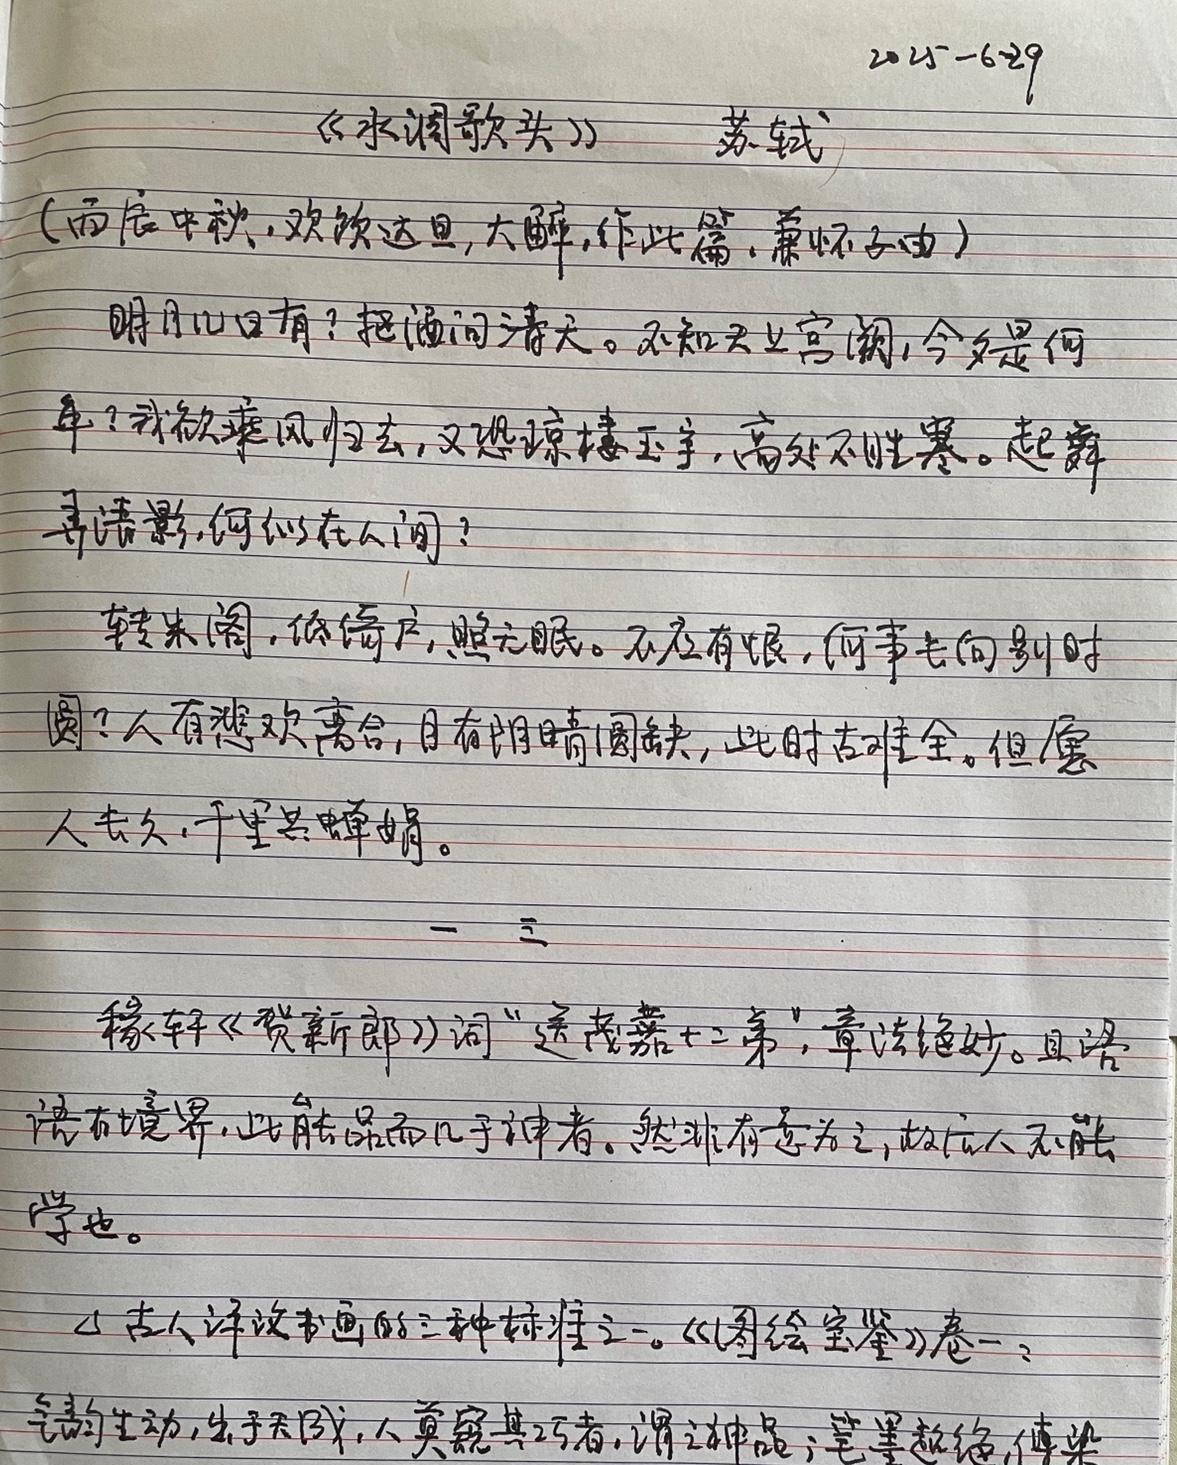 2025-6-29
《水调歌头》 苏轼
(丙辰中秋,欢饮达旦,大醉,作此篇,兼怀子由)
明月几时有?把酒问青天。不知天上宫阙,今夕是何
年?我欲乘风归去,又恐琼楼玉宇,高处不胜寒。起舞
弄清影,何似在人间?
转朱阁,低绮户,照无眠。不应有恨,何事长向别时
圆?人有悲欢离合,月有阴晴圆缺,此时古难全。但愿
人长久,千里共婵娟。
一 三
稼轩《贺新郎》词"送茂嘉十二弟",章法绝妙。且语
语有境界,此能品而几于神者。然非有意为之,故后人不能
学也。
△古人评议书画的三种标准之一。《图绘宝鉴》卷一:
气韵生动,出于天成,人莫窥其巧者,谓之神品;笔墨超绝,傅染